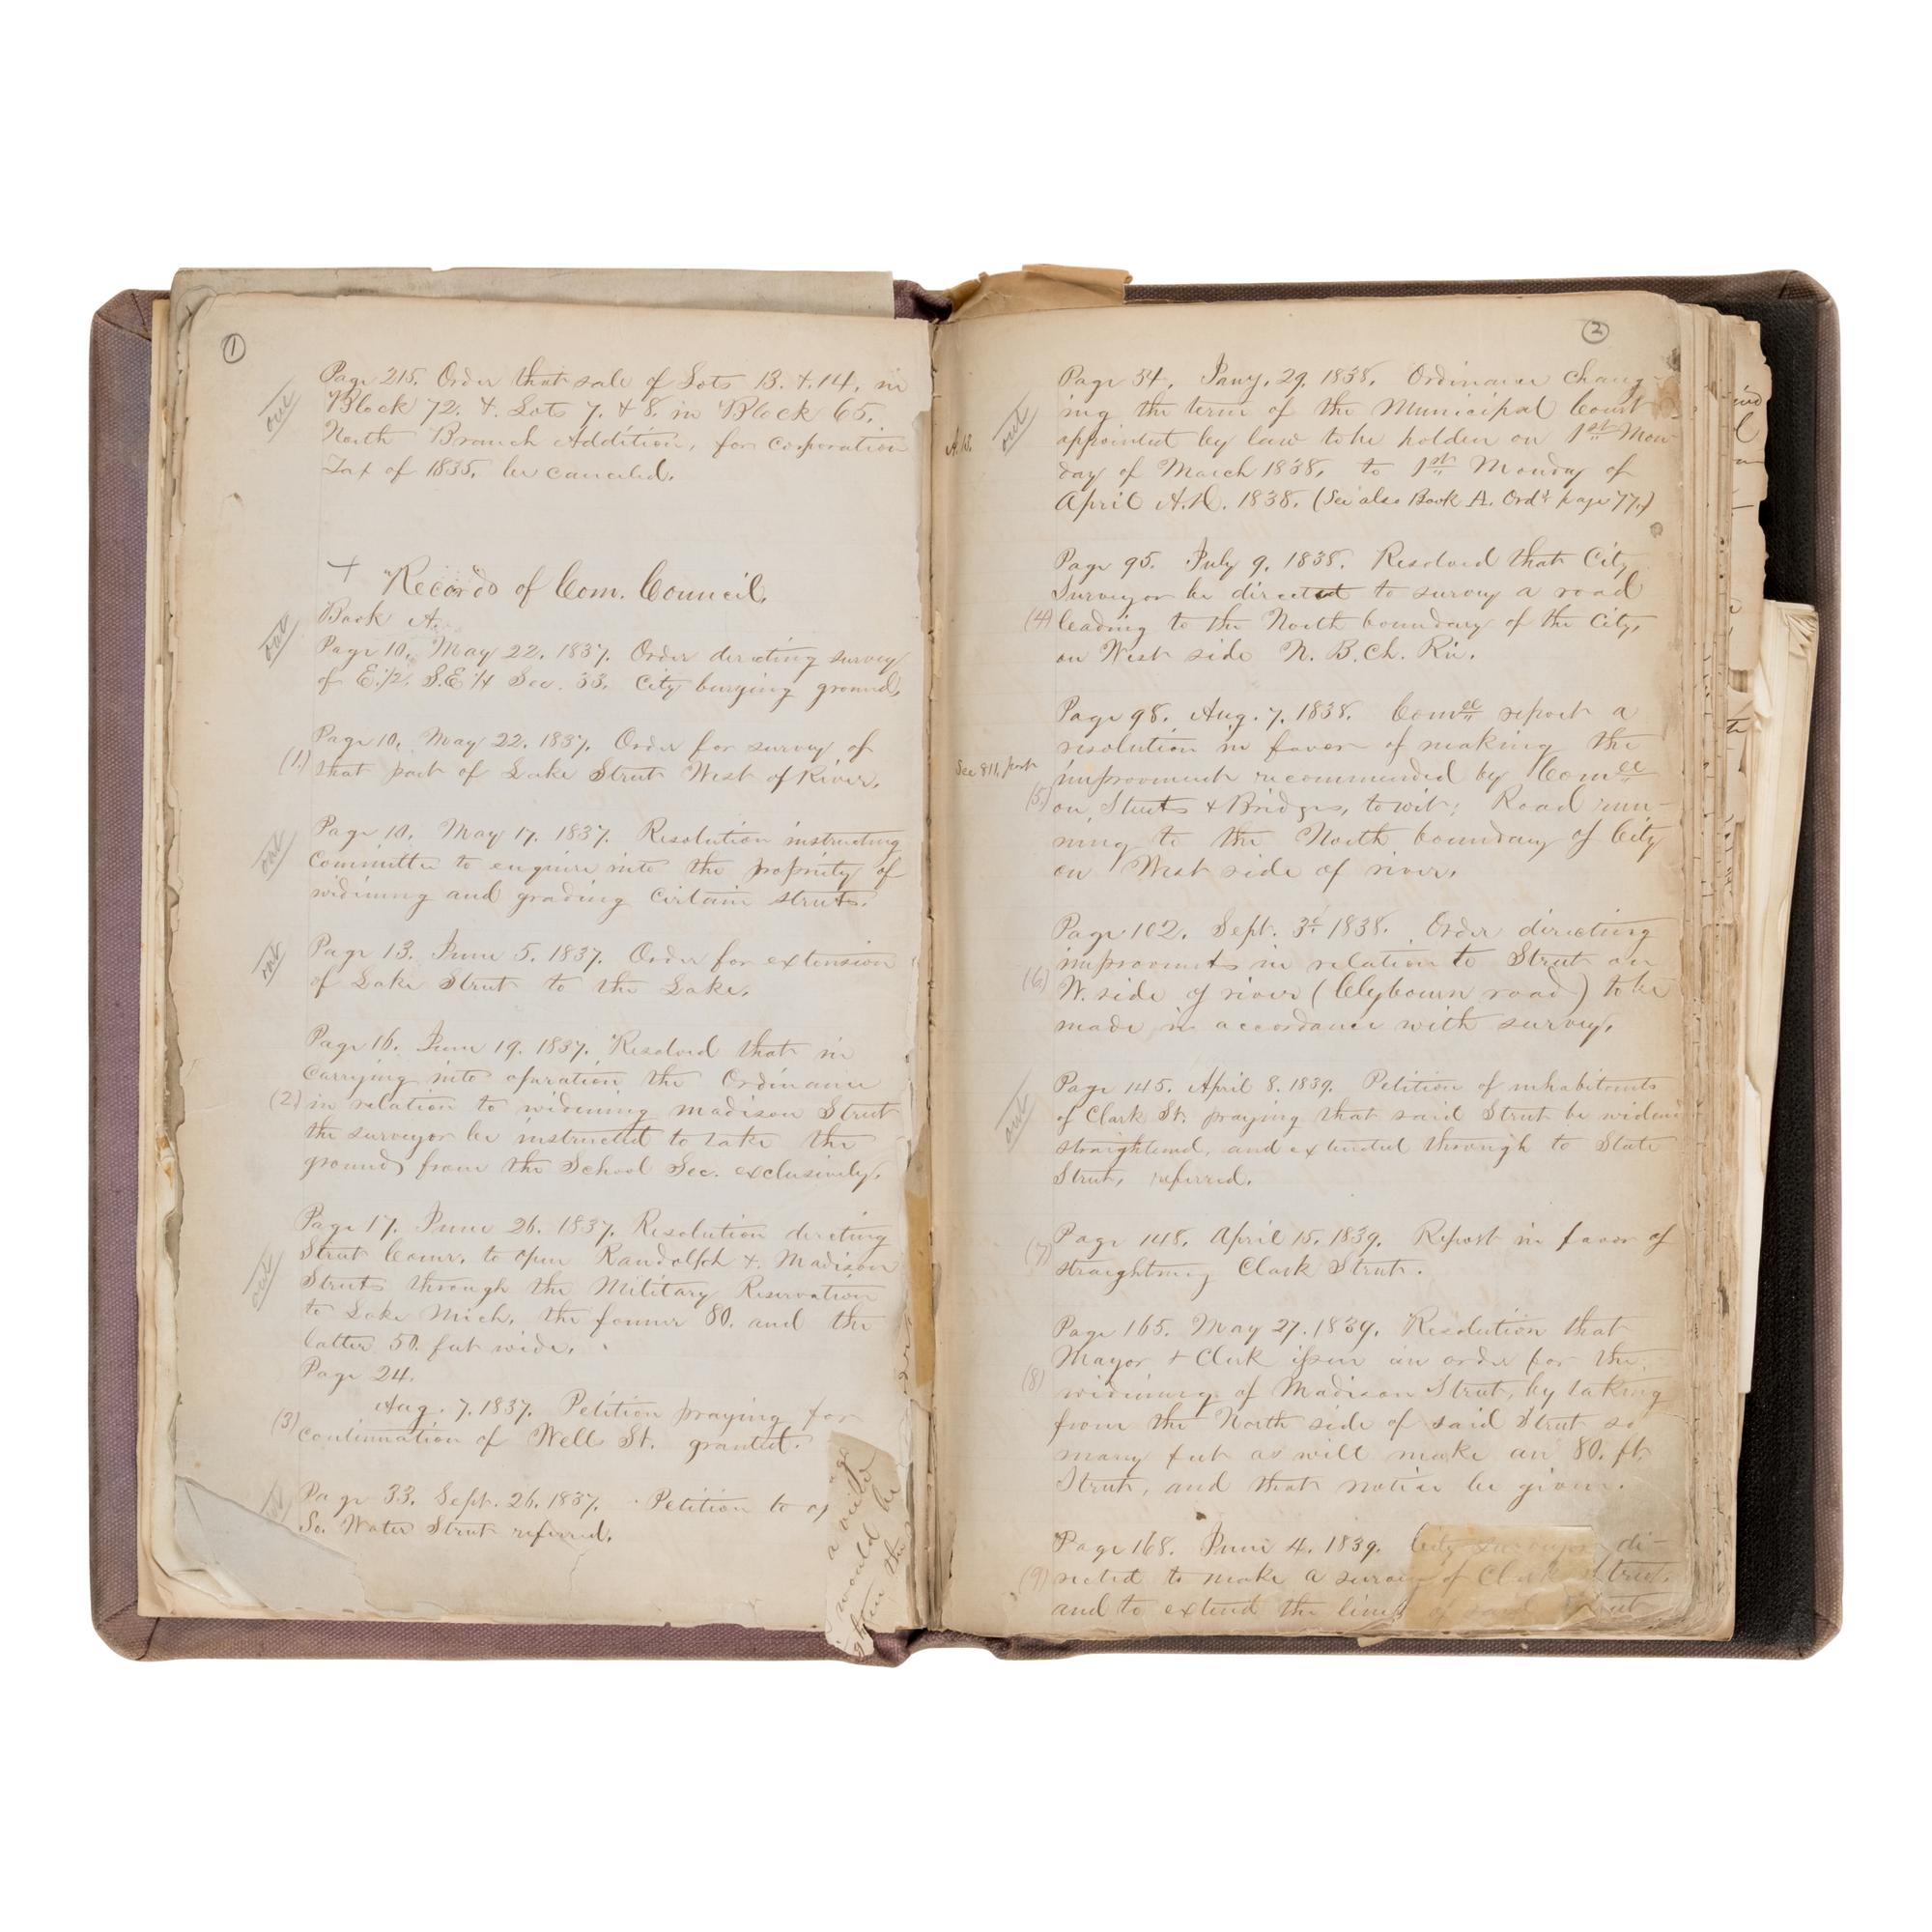 1
Page 215. Order that sale of Lots 13. & 14. in
out
Block 72. & Lots 7. & 8. in Block 65.
North Branch Addition, for corporation
Tax of 1835, be canceled.
+ Records of Com. Council.
Book A.
out
Page 10. May 22. 1837. Order directing survey
of E. 1/2. S.E 1/4 Sec. 33. City burying ground.
Page 10. May 22. 1837. Order for survey of
(1) that part of Lake Street West of River.
Page 10. May 17. 1837. Resolution instructing
out
Committee to enquire into the propriety of
widening and grading certain streets.
out
Page 13. June 5. 1837. Order for extension
of Lake Street to the Lake.
Page 16. June 19. 1837. Resolved that in
carrying into operation the Ordinance
(2) in relation to widening Madison Street
the surveyor be instructed to take the
ground from the School Sec. exclusively.
Page 17. June 26. 1837. Resolution directing
Street Comr. to open Randolph & Madison
out
Streets through the Military Reservation
to Lake Mich. the former 80. and the
latter 50. feet wide.
Page 24.
Aug. 7. 1837. Petition praying for
(3) continuation of Well St. granted.
out
Page 33. Sept. 26. 1837. Petition to
So. Water Street referred.
would be
the
2
Page 34. Jany. 29. 1838. Ordinance chang-
out
ing the term of the Municipal Court
appointed by law to be holden on 1st Mon
day of March 1838. to 1st Monday of
April A.D. 1838. (See also Book A. Ords page 77.)
Page 95. July 9. 1838. Resolved that City
Surveyor be directed to survey a road
(4) leading to the North boundary of the City,
on West side N. B. Ch. Riv.
Page 98. Aug. 7. 1838. Comee report a
resolution in favor of making the
See 811, post
improvement recommended by Comee
(5) on Streets & Bridges, to wit: Road run-
ning to the North boundary of City
on West side of river.
Page 102. Sept. 3d 1838. Order directing
improvements in relation to Street on
(6) W. side of river (Clybourn road) to be
made in accordance with survey.
Page 145. April 8. 1839. Petition of inhabitants
out
of Clark St. praying that said Street be widened
straightened, and extended through to State
Street, referred.
Page 148. April 15. 1839. Report in favor of
(7) straightning Clark Street.
Page 165. May 27. 1839. Resolution that
Mayor & Clerk issue an order for the
(8) widening of Madison Street, by taking
from the North side of said Street so
many feet as will make an 80. ft.
Street, and that notice be given.
Page 168. June 4. 1839. City Surveyor di-
(9) rected to make a survey of Clark Street.
and to extend the lines of said Street